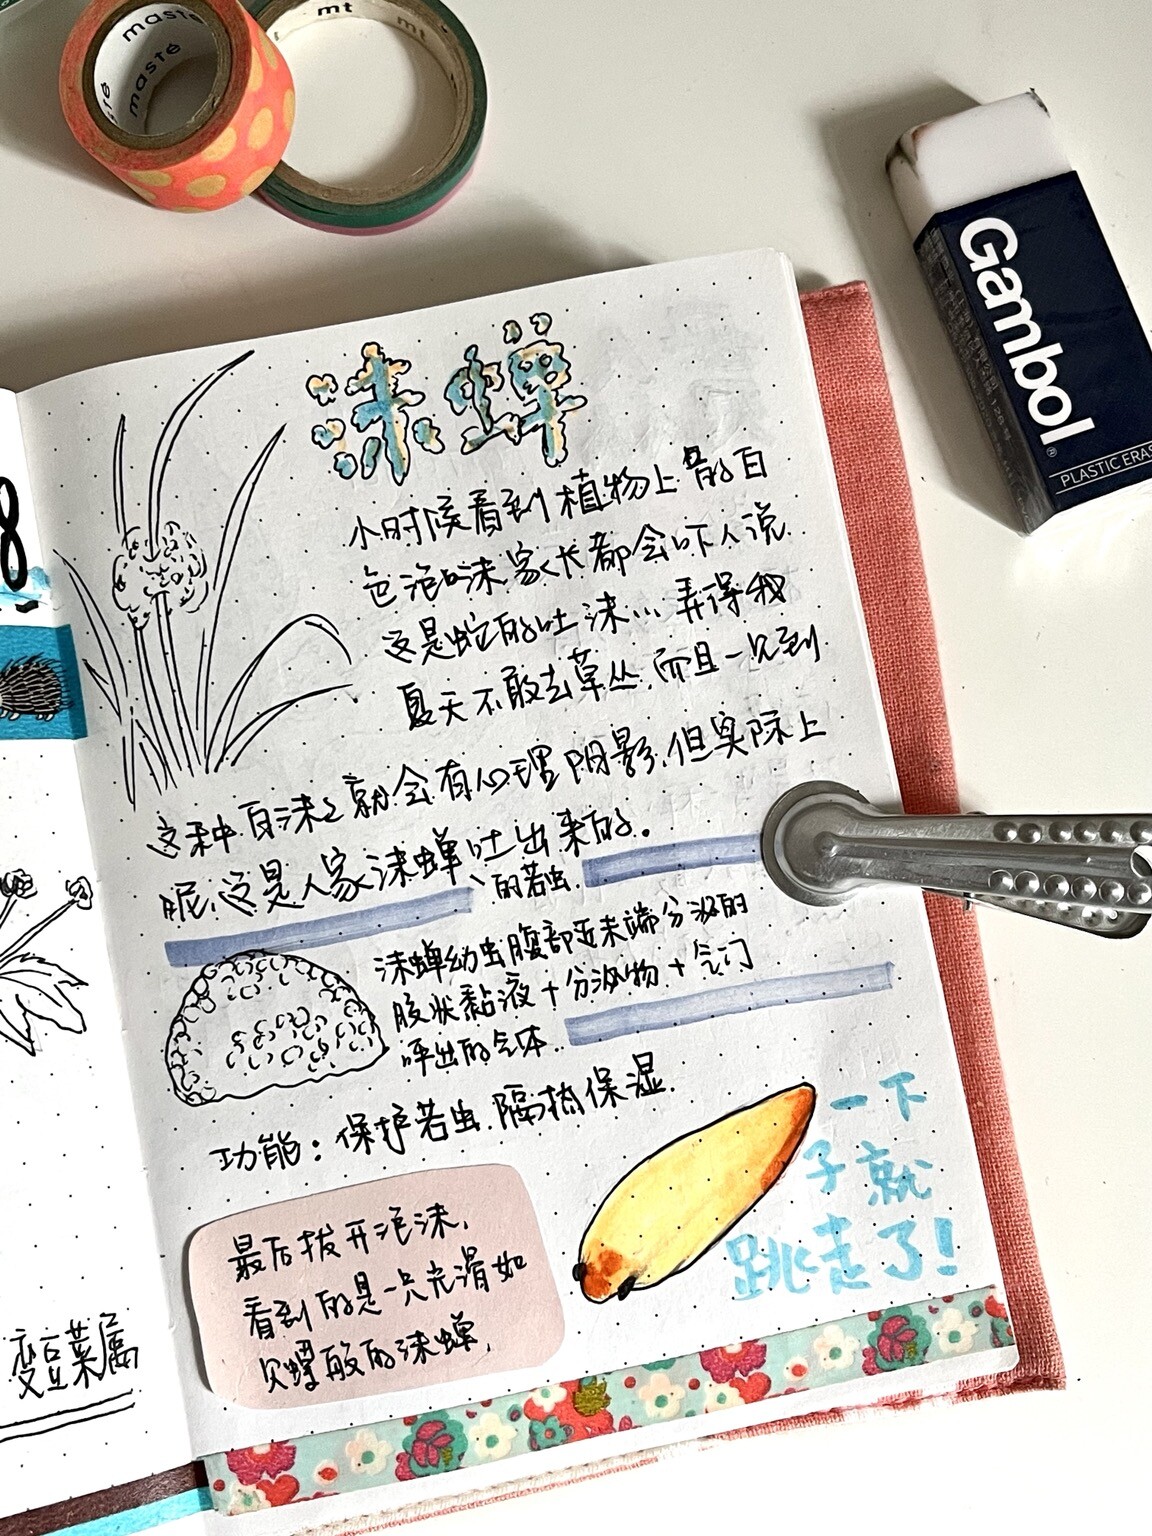 maste
masté
mt
mt
Gambol
PLASTIC ERAS
8
沫蝉
小时候看到植物上的白
色泡沫家长都会吓人说
这是蛇的吐沫…弄得我
夏天不敢去草丛,而且一见到
这种白沫就会有心理阴影,但实际上
呢,这是人家沫蝉吐出来的。
的若虫.
沫蝉幼虫腹部至末端分泌的
胶状黏液+分泌物+气门
呼出的气体.
功能:保护若虫.隔热保湿.
最后拔开泡沫,
看到的是一只光滑如
贝螺般的沫蝉,
一下
子就
跳走了!
变豆菜属